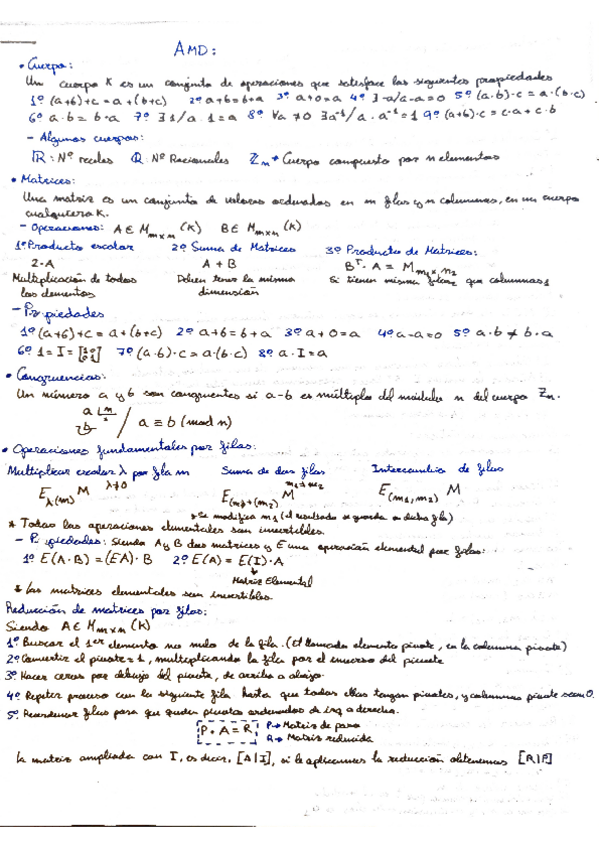 AMD:
• Cuerpo:
Un cuerpo K es un conjunto de operaciones que satisface las siguientes propiedades
1º (a+b)+c = a+(b+c) 2º a+b=b+a 3º a+0=a 4º ∃-a/a-a=0 5º (a·b)·c = a·(b·c)
6º a·b = b·a 7º ∃1/a·1=a 8º ∀a≠0 ∃a⁻¹/a·a⁻¹=1 9º (a+b)·c = c·a+c·b
- Algunos cuerpos:
ℝ: Nº reales ℚ: Nº Racionales ℤn → Cuerpo compuesto por n elementos
• Matrices:
Una matriz es un conjunto de valores ordenados en m filas y n columnas, en un cuerpo
cualquiera K.
- Operaciones: A∈Mmxn (K) B∈Mmxn (K)
1º Producto escalar 2º Suma de Matrices 3º Producto de Matrices:
2·A A+B Bᵀ·A = Mm₁xn₂
Multiplicación de todos Deben tener la misma Si tienen misma filas₂ que columnas₁
los elementos dimensión
- Propiedades
1º (a+b)+c = a+(b+c) 2º a+b=b+a 3º a+0=a 4º a-a=0 5º a·b≠b·a
6º 1=I=[1 0 0 1] 7º (a·b)·c=a·(b·c) 8º a·I=a
• Congruencias:
Un número a y b son congruentes si a-b es múltiplo del módulo n del cuerpo ℤn.
a ≡ b (mod n)
• Operaciones fundamentales por filas:
Multiplicar escalar λ por fila m Suma de dos filas Intercambio de filas
Eλ(m) M λ≠0 E(m₁+(m₂) M m₁≠m₂ E(m₁,m₂) M
Se modifica m₁ (el resultado se guarda en dicha fila)
* Todas las operaciones elementales son invertibles.
- Propiedades: Siendo A y B dos matrices y E una operación elemental por filas:
1º E(A·B) = (EA)·B 2º E(A) = E(I)·A
Matriz Elemental
* Las matrices elementales son invertibles.
Reducción de matrices por filas:
Siendo A∈Mmxn (K)
1º Buscar el 1er elemento no nulo de la fila. (El llamado elemento pivote, en la columna pivote)
2º Convertir el pivote=1, multiplicando la fila por el inverso del pivote
3º Hacer ceros por debajo del pivote, de arriba a abajo.
4º Repetir proceso con la siguiente fila hasta que todas ellas tengan pivotes, y columnas pivote sean 0.
5º Reordenar filas para que queden pivotes ordenados de izq a derecha.
P·A=R P→ Matriz de paso
R→ Matriz reducida
La matriz ampliada con I, es decir, [A|I], si le aplicamos la reducción obtenemos [R|P]